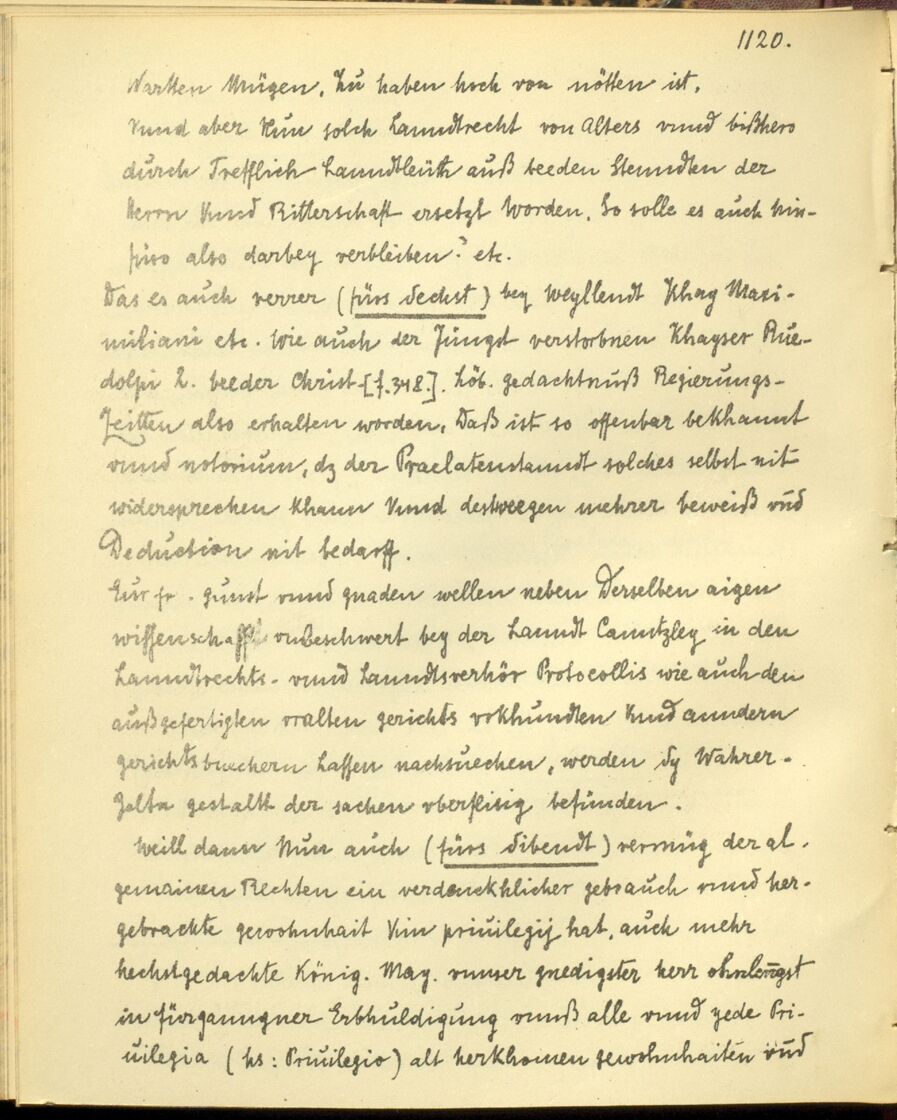 1120.
Nartten Mügen, Zu haben hoch von nötten ist,
vnnd aber Nun solch Lanndtrecht von Alters vnnd bißhero
durch Trefflich Lanndtleüth auß beeden Stenndten der
Herrn Vnnd Ritterschafft ersetzt worden, So solle es auch hin-
füro also darbey verbleiben? etc.
Das es auch verrer (fürs Sechst) bey Weyllendt Khay Maxi-
miliani etc. wie auch der Jüngst verstorbnen Khayser Rue-
dolpi 2. beeder Christ-[f.348.]. Löb. gedachtnuß Regierungs-
Zeitten also erhalten worden, Daß ist so offenbar bekhannt
vnnd notorium, dz der Praelatenstanndt solches selbst nit
widersprechen khann Vnnd destweegen mehrer beweiß vnd
Deduction nit bedarff.
Eur fr. gunst vnnd gnaden wellen neben Derselben aigen
wissenschafft vnbeschwert bey der Lanndt Canntzley in den
Lanndtrechts- vnnd Lanndtsverhör Protocollis wie auch den
außgefertigten vralten gerichts vrkhundten Vnnd anndern
gerichtsbuechern Lassen nachsuechen, werden sy Wahrer-
Zelta gestallt der sachen vberflisig befünden.
Weill dann Nun auch (fürs Sibendt) vermüg der al-
gemainen Rechten ein verdenckhlicher gebrauch vnnd her-
gebrachte gewohnhait Vim priuilegij hat, auch mehr
hechstgedachte König. May. vnnser gnedigster herr ohnlengst
in fürganngner Erbhuldigung vnnß alle vnnd yede Pri-
uilegia (hs: Priuilegio) alt herkhomen gewohnhaiten vnd